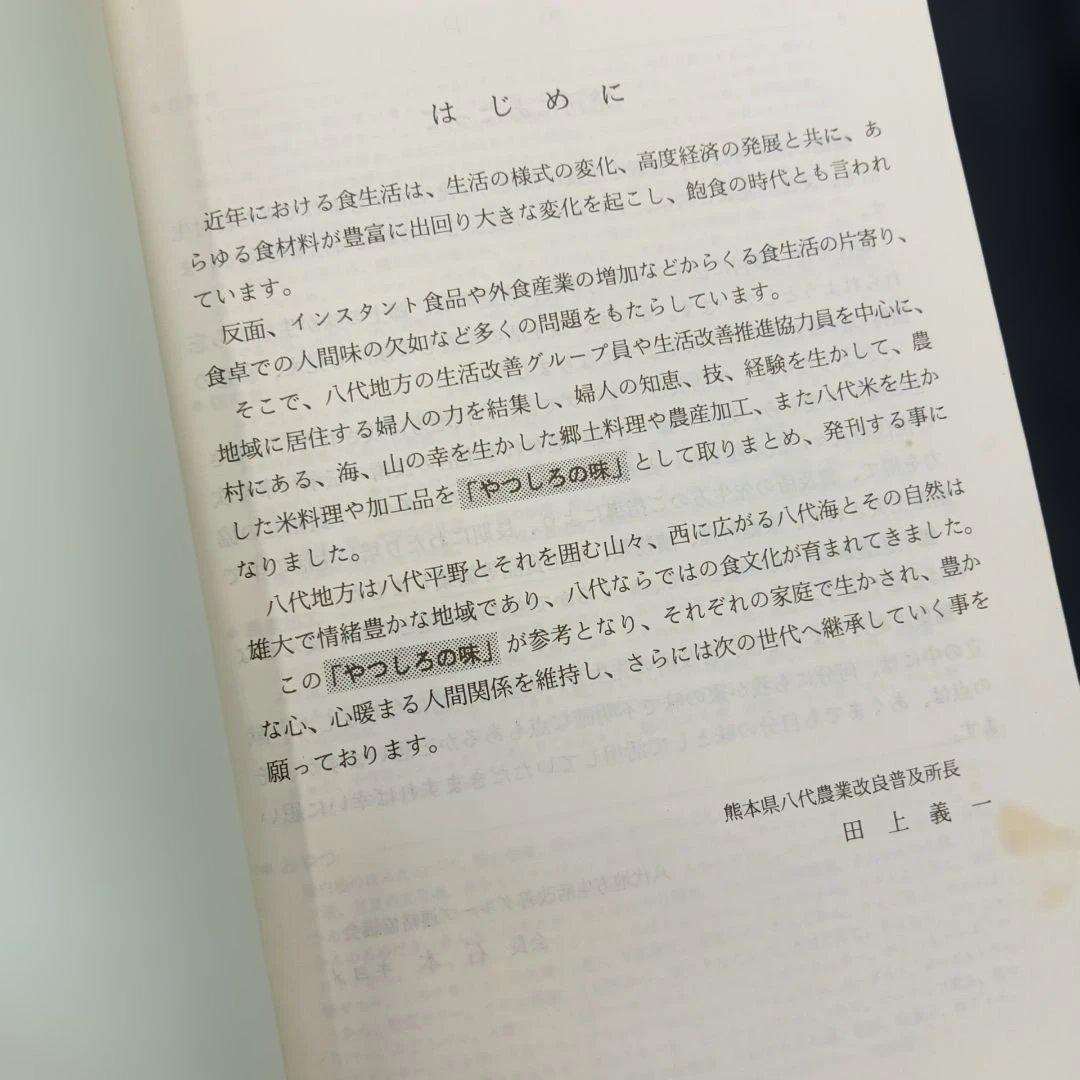 はじめに
近年における食生活は、生活の様式の変化、高度経済の発展と共に、あ
らゆる食材料が豊富に出回り大きな変化を起こし、飽食の時代とも言われ
ています。
反面、インスタント食品や外食産業の増加などからくる食生活の片寄り、
食卓での人間味の欠如など多くの問題をもたらしています。
そこで、八代地方の生活改善グループ員や生活改善推進協力員を中心に、
地域に居住する婦人の力を結集し、婦人の知恵、技、経験を生かして、農
村にある、海、山の幸を生かした郷土料理や農産加工、また八代米を生か
した米料理や加工品を「やつしろの味」として取りまとめ、発刊する事に
なりました。
八代地方は八代平野とそれを囲む山々、西に広がる八代海とその自然は
雄大で情緒豊かな地域であり、八代ならではの食文化が育まれてきました。
この「やつしろの味」が参考となり、それぞれの家庭で生かされ、豊か
な心、心暖まる人間関係を維持し、さらには次の世代へ継承していく事を
願っております。
熊本県八代農業改良普及所長
田上義一